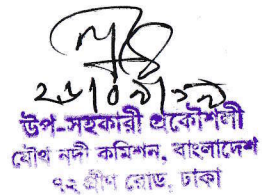 উপ-সহকারী প্রকৌশলী
যৌথ নদী কমিশন, বাংলাদেশ
৭২ গ্রীণ রোড, ঢাকা